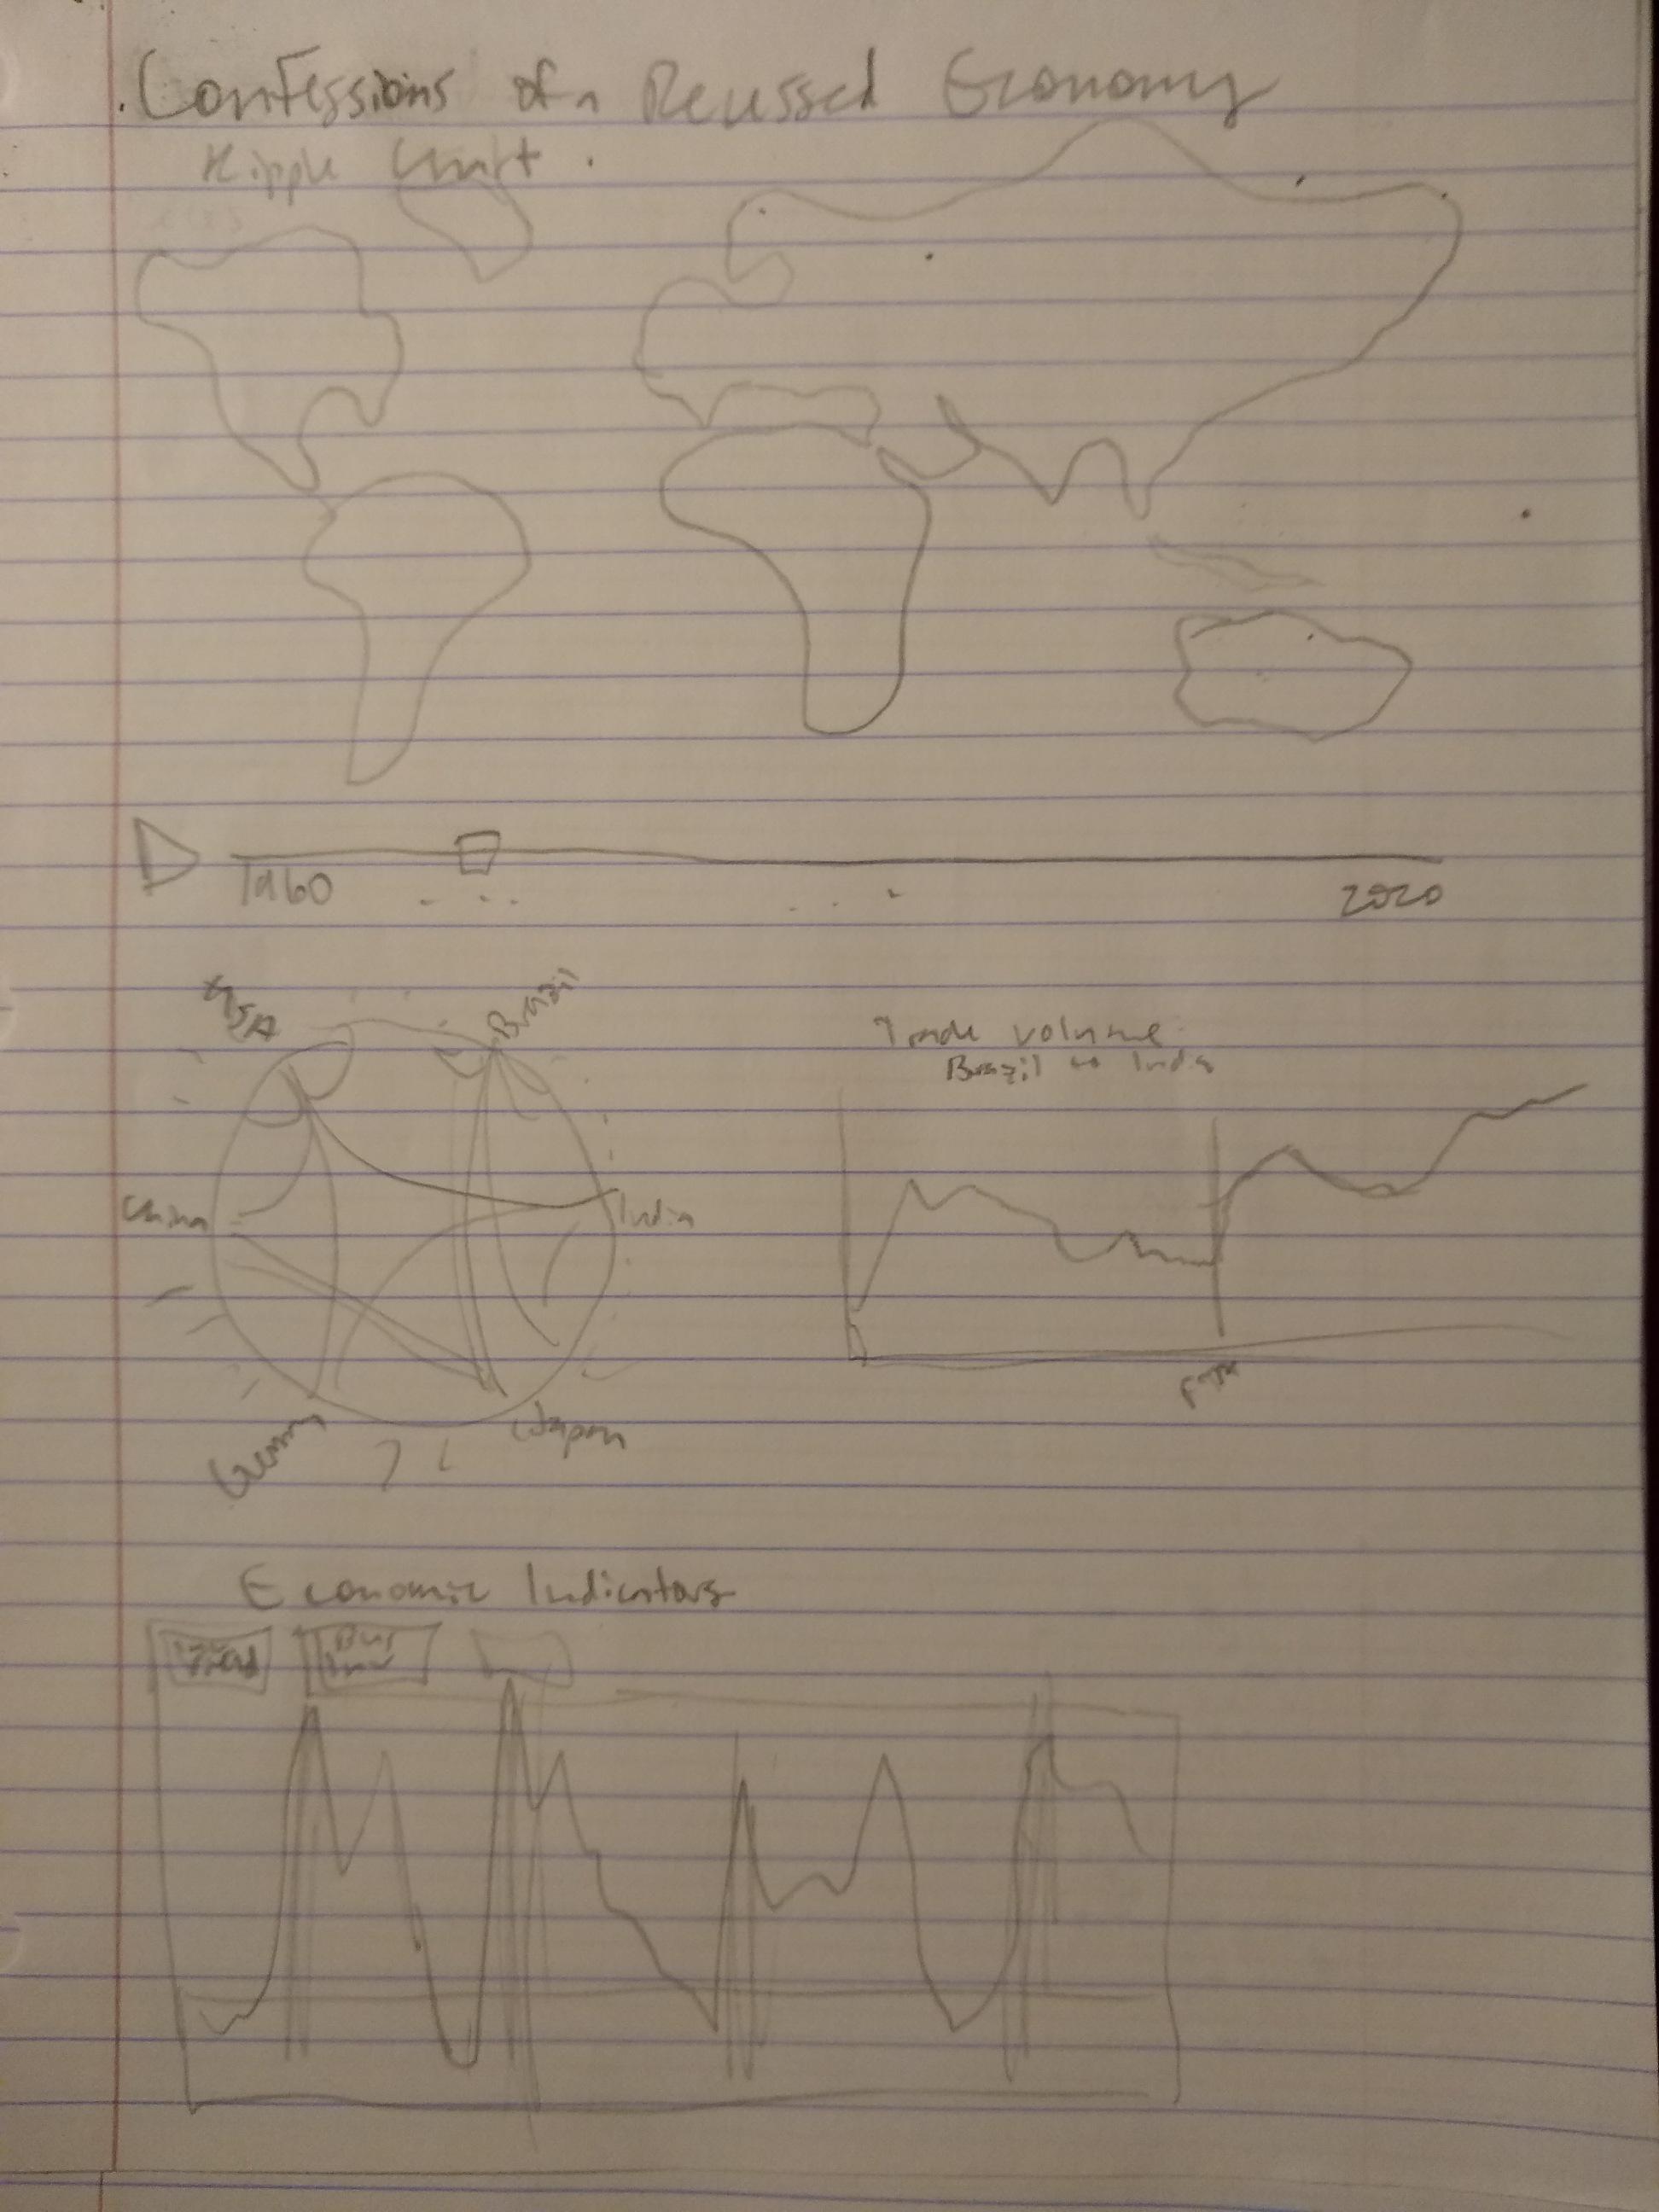 Confessions of a Recussed Economy
Ripple Chart
1960
2020
USA
Brazil
China
India
Germany
Japan
Trade volume
Brazil to India
FTA
Economic Indicators